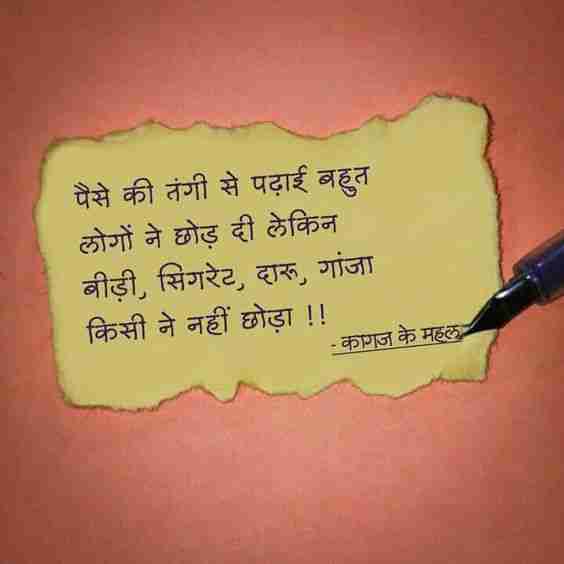 पैसे की तंगी से पढ़ाई बहुत
लोगों ने छोड़ दी लेकिन
बीड़ी, सिगरेट, दारू, गांजा
किसी ने नहीं छोड़ा !!
- कागज के महल